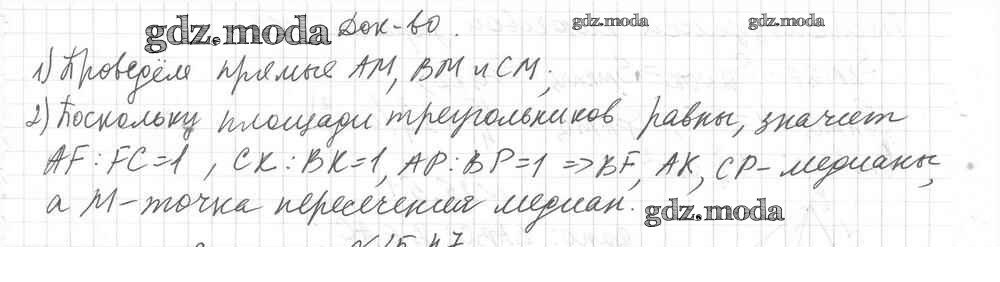 gdz.moda Док-во. gdz.moda gdz.moda
1) Проведём прямые AM, BM и CM;
2) Поскольку площади треугольников равны, значит
AF:FC=1, CK:BK=1, AP:BP=1 => BF, AK, CP-медианы,
а M-точка пересечения медиан. gdz.moda